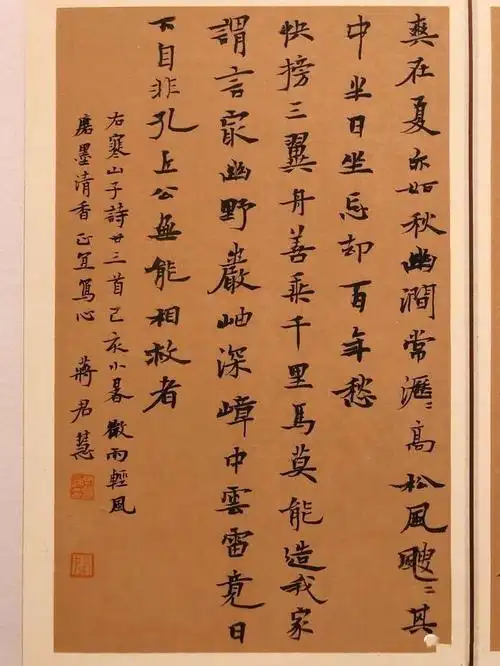 爽在夏亦如秋幽澗常瀝〻高松風颼〻其
中半日坐忘却百年愁
快搒三翼舟善乘千里馬莫能造我家
謂言冣幽野巖岫深嶂中雲雷竟日
下自非孔丘公無能相救者
右寒山子詩廿三首己亥小暑微雨輕風
磨墨清香正宜寫心 蔣君慧